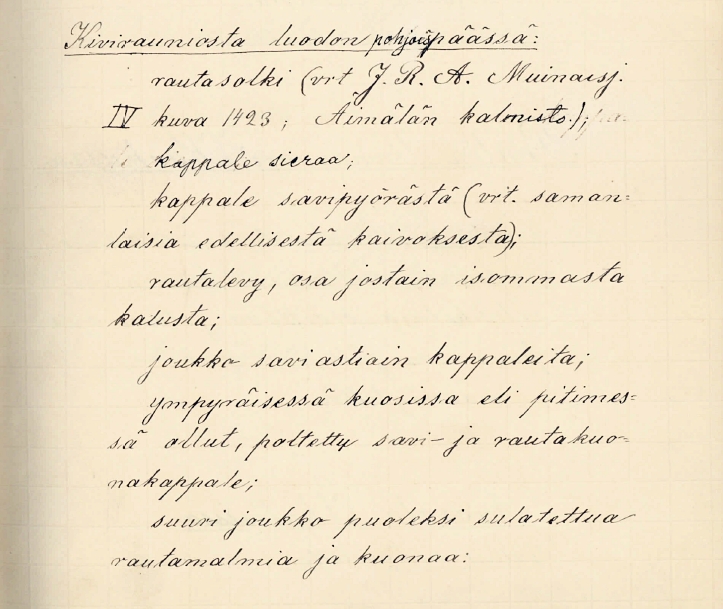 Kivirauniosta luodon pohjoispäässä:
rautasolki (vrt J. R. A. Muinaisj.
IV kuva 1423; Äimälän kalmisto.);
kappale sieraa;
kappale savipyörästä (vrt. saman-
laisia edellisestä kaivoksesta);
rautalevy, osa jostain isommasta
kalusta;
joukko saviastiain kappaleita;
ympyräisessä kuosissa eli pitimes-
sä ollut, poltettu savi- ja rautakuo-
nakappale;
suuri joukko puoleksi sulatettua
rautamalmia ja kuonaa: